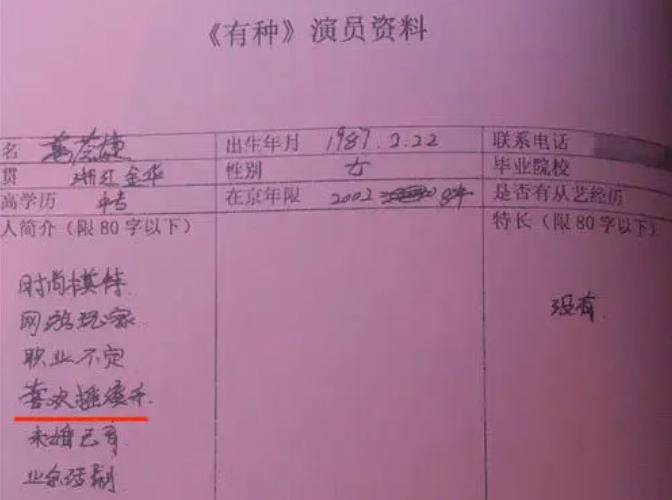 《有种》演员资料
名 葛荟婕 出生年月 1987.2.22 联系电话
贯 浙江金华 性别 女 毕业院校
高学历 中专 在京年限 2002 8年 是否有从艺经历
人简介（限80字以下） 特长（限80字以下）
时尚模特
网游玩家 没有
职业不定
喜欢摇滚乐
未婚已育
业余话剧